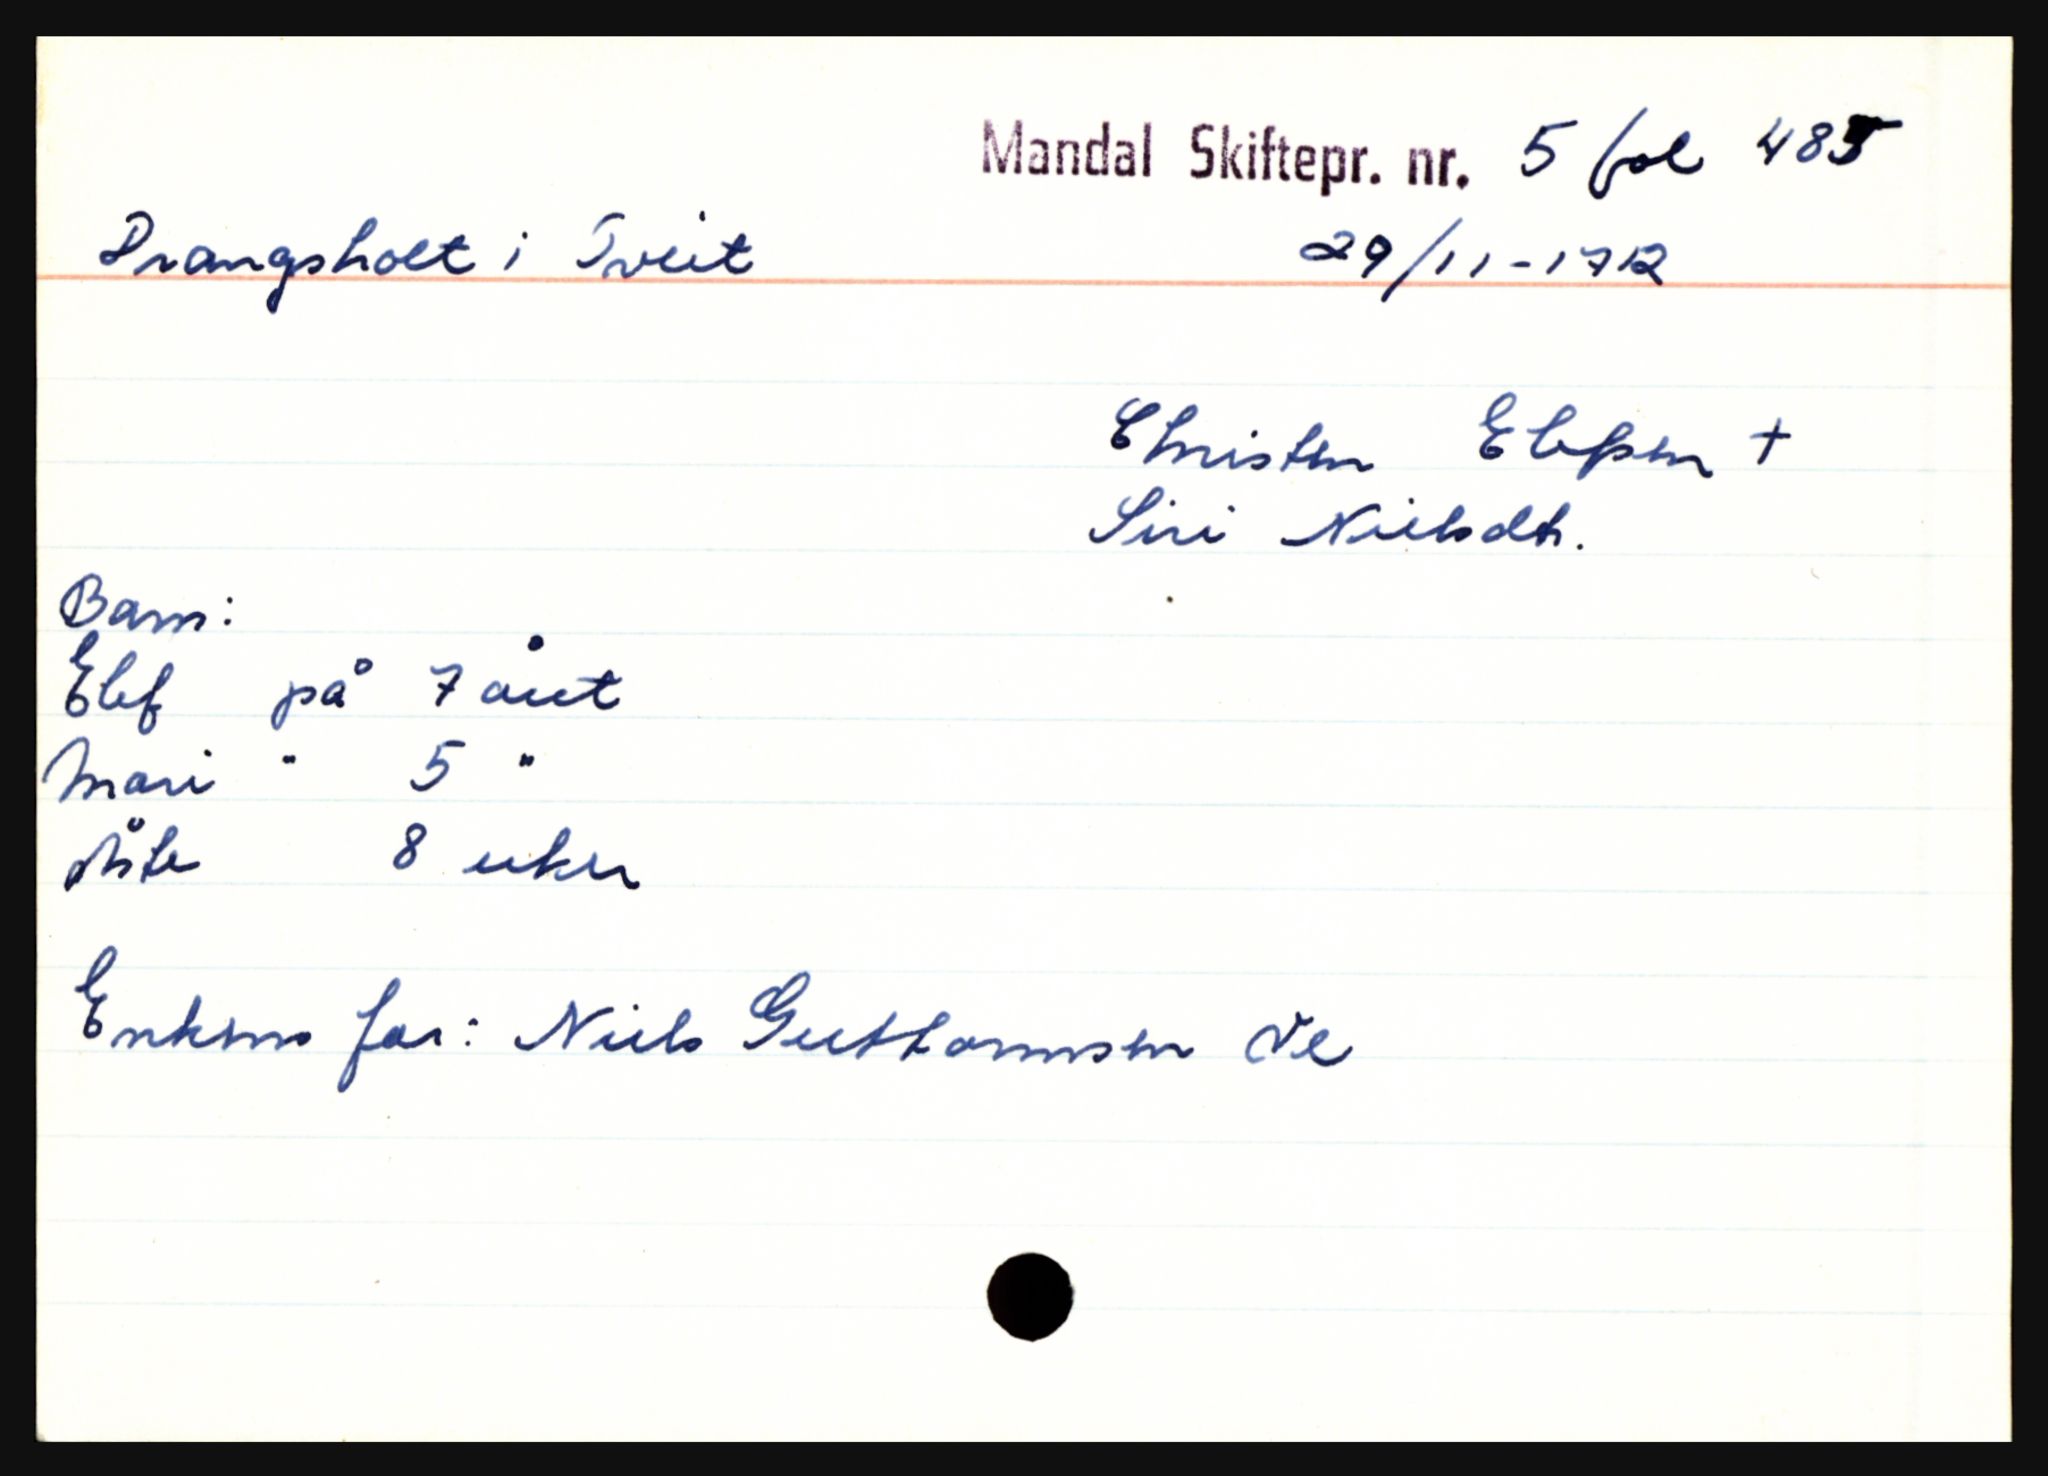 Mandal Skiftepr. nr. 5 fol 485
Drangsholt i Tveit 29/11-1712
Christen Elefsen +
Siri Nielsdtr.
Barn:
Elef på 7 året
Mari " 5 "
Åste 8 uker
Enkens far: Niels Guttormsen Ve